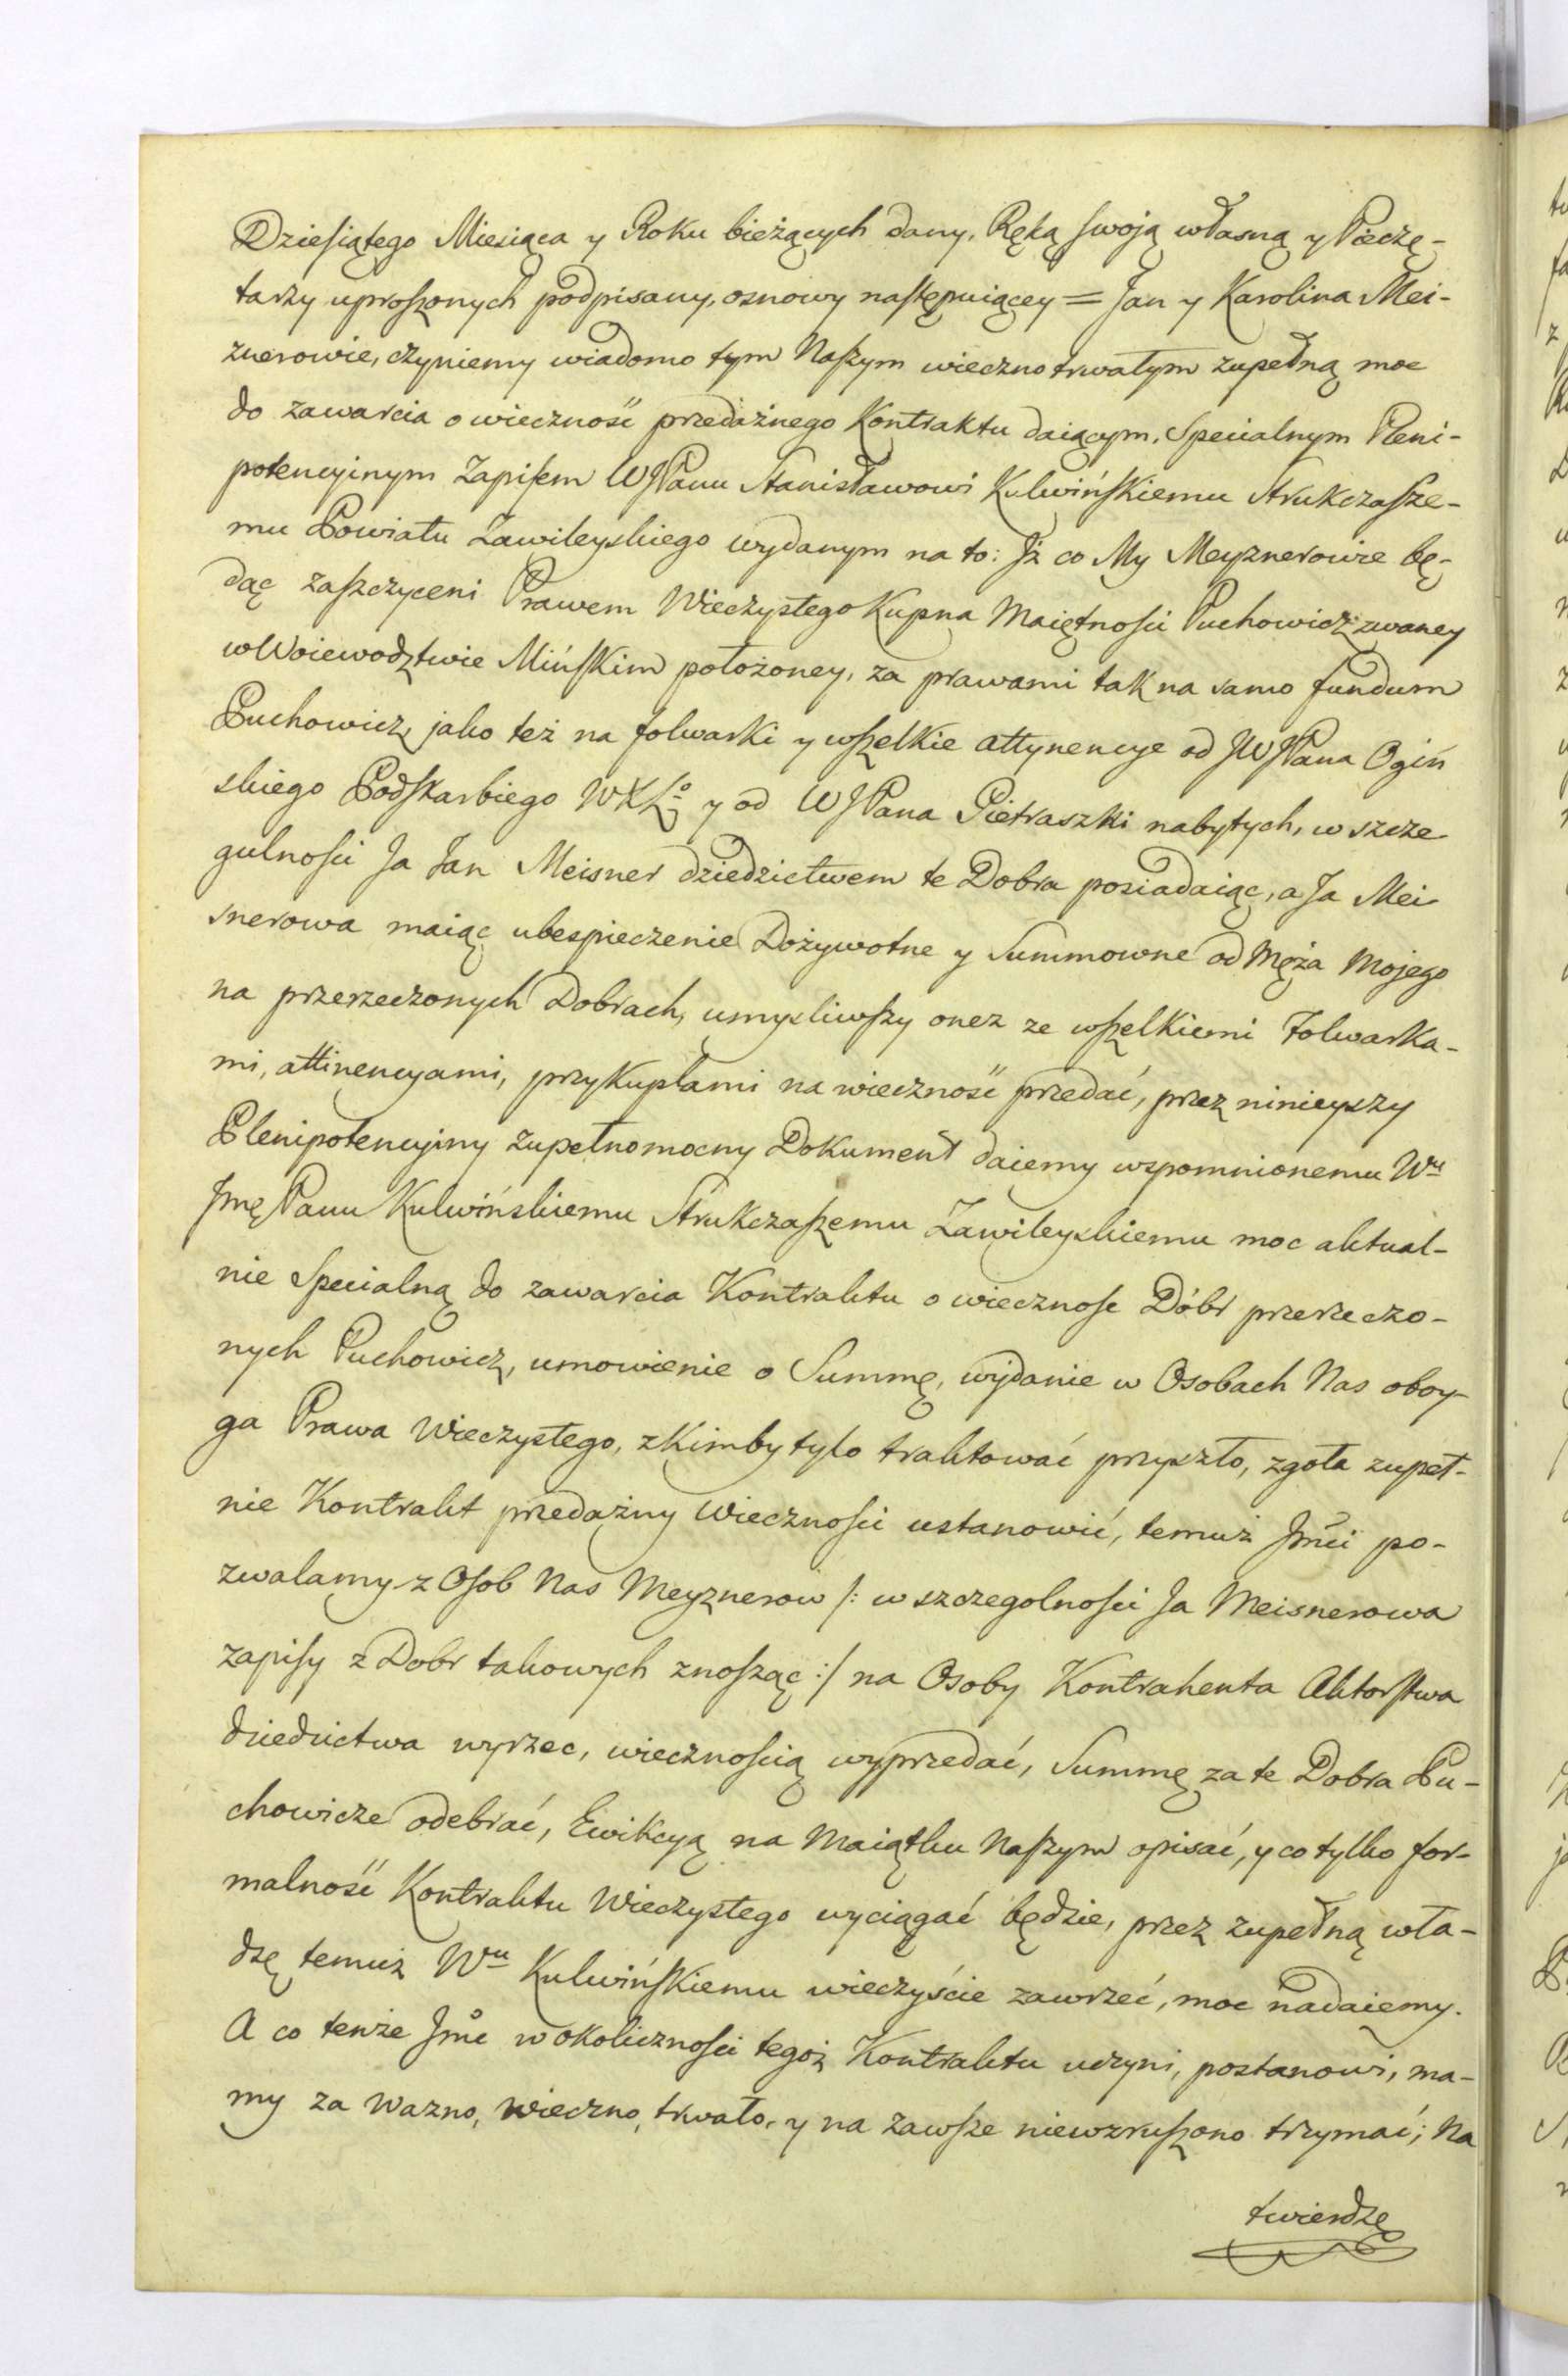 Dziesiątego Miesiąca y Roku bieżących dany, Ręką swoją własną y Pieczę-
tarzy uproszonych podpisany, osnowy następuiącey = Jan y Karolina Mei-
znerowie, czyniemy wiadomo tym Naszym wieczno trwałym zupełną moc
do zawarcia o wieczność przedażnego Kontraktu daiącym, Specialnym Pleni-
potencyinym Zapisem WJPanu Stanisławowi Kulwińskiemu Strukczasze-
mu Powiatu Zawileyskiego wydanym na to: Jż co My Meyznerowie bę-
dąc zaszczyceni Prawem Wieczystego Kupna Maiętności Puchowicz zwaney
w Woiewodztwie Mińskim położoney, za prawami tak na samo fundum
Puchowicz, jako też na folwarki y wszelkie attynencye od JWJPana Ogiń
skiego Podskarbiego WXLo y od WJPana Pietraszki nabytych, w szcze
gulności Ja Jan Meisner dziedzictwem te Dobra posiadaiąc, a Ja Mei
snerowa maiąc ubespieczenie Dożywotne y Summowne od Męża Mojego
na przerzeczonych Dobrach, umysliwszy onez ze wszelkiemi Folwarka-
mi, attinencyami, przykupłami na wieczność przedać, przez ninieyszy
Plenipotencyiny zupełnomocny Dokument daiemy wspomnionemu Wu
Jmę Panu Kulwińskiemu Strukczaszemu Zawileyskiemu moc aktual-
nie Specialną do zawarcia Kontraktu o wiecznośc Dóbr przerzeczo-
nych Puchowicz, umowienie o Summę, wydanie w Osobach Nas oboy-
ga Prawa Wieczystego, z Kimby tylo traktować przyszło, zgoła zupeł-
nie Kontrakt przedażny Wieczności ustanowić, temuż Jmci po-
zwalamy z Osob Nas Meyznerow /: w szczegolności Ja Meisnerowa
zapisy z Dobr takowych znosząc :/ na Osoby Kontrahenta Aktorstwa
dziedzictwa wyrzec, wiecznością wyprzedać, Summę za te Dobra Pu-
chowicze odebrać, Ewikcyą na Maiątku Naszym opisać, y co tylko for-
malność Kontraktu Wieczystego wyciągać będzie, przez zupełną wła-
dzę temuż Wu Kulwińskiemu wieczyście zawrzeć, moc nadaiemy.
A co tenże Jmc w okoliczności tegoż Kontraktu uczyni, postanowi, ma-
my za Wazno, wieczno, trwało, y na zawsze niewzruszono trzymać; Na
twierdzę